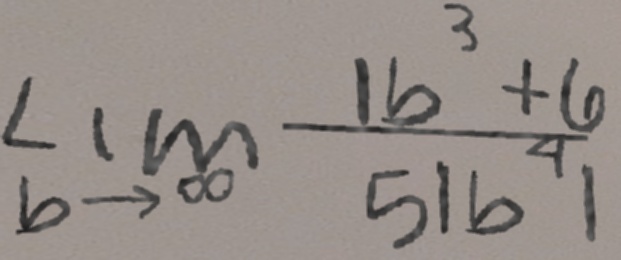 Lim_{b→∞} \frac{1b^3+6}{51b^4 1}